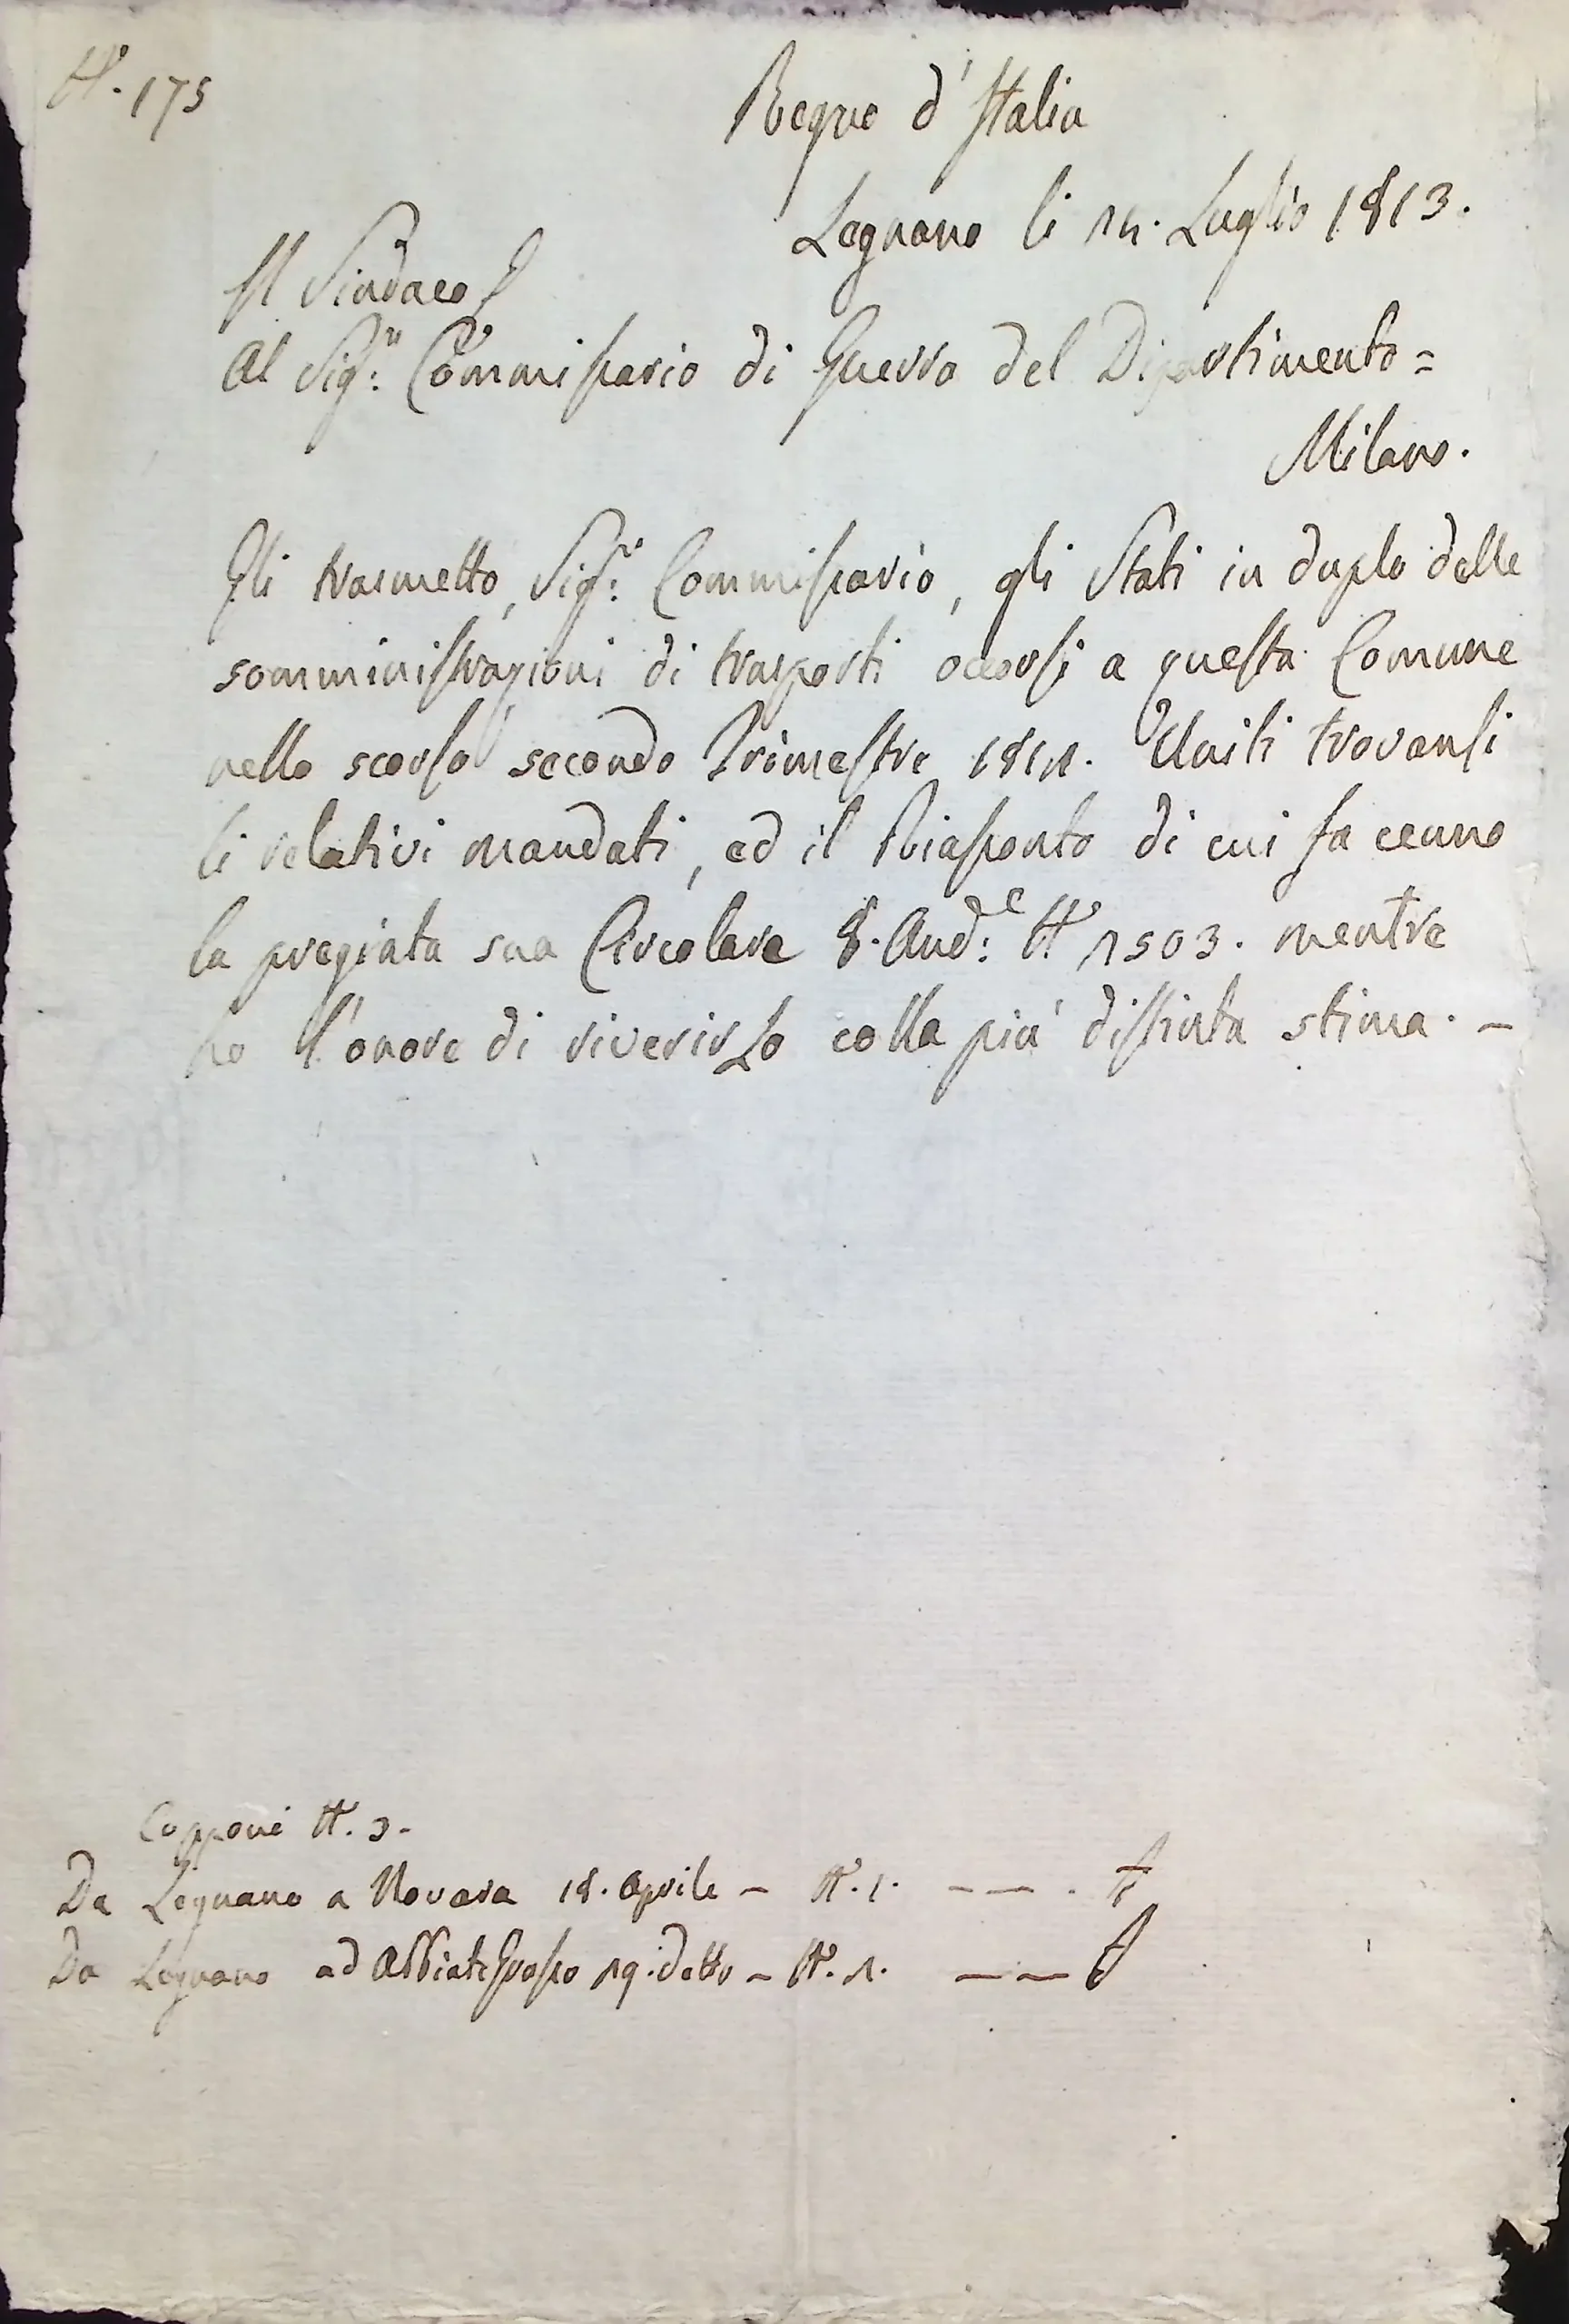 N.° 175
Regno d'Italia
Legnano li 14. Luglio 1813.
Il Sindaco
Al Sig.r Commissario di Guerra del Dipartimento =
Milano.
Gli trasmetto, Sig.r Commissario, gli Stati in duplo delle
somministrazioni di trasporti occorsi a questa Comune
nello scorso secondo Trimestre 1811. Uniti trovansi
li relativi mandati, ed il Riasponto di cui fa cenno
la pregiata sua Circolare 8. And.e N.° 1503. mentre
ho l'onore di riverirLo colla più distinta stima. -
Copponi N.° 3.
Da Legnano a Novara 18. Aprile - N.° 1.
Da Legnano ad AbbiateGrasso 19. detto - N.° 1.